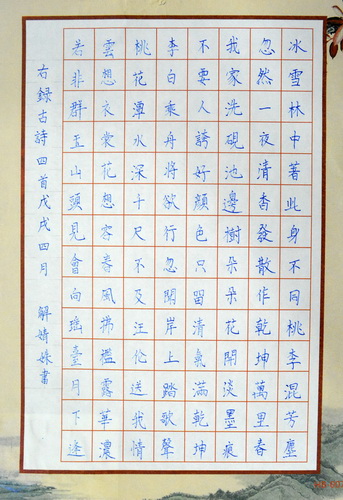 冰雪林中著此身不同桃李混芳塵
忽然一夜清香發散作乾坤萬里春
我家洗硯池邊樹朵朵花開淡墨痕
不要人誇好顏色只留清氣滿乾坤
李白乘舟將欲行忽聞岸上踏歌聲
桃花潭水深千尺不及汪伦送我情
雲想衣裳花想容春風拂檻露華濃
若非群玉山頭見會向瑤臺月下逢
右錄古詩四首戊戌四月 解婧姝書